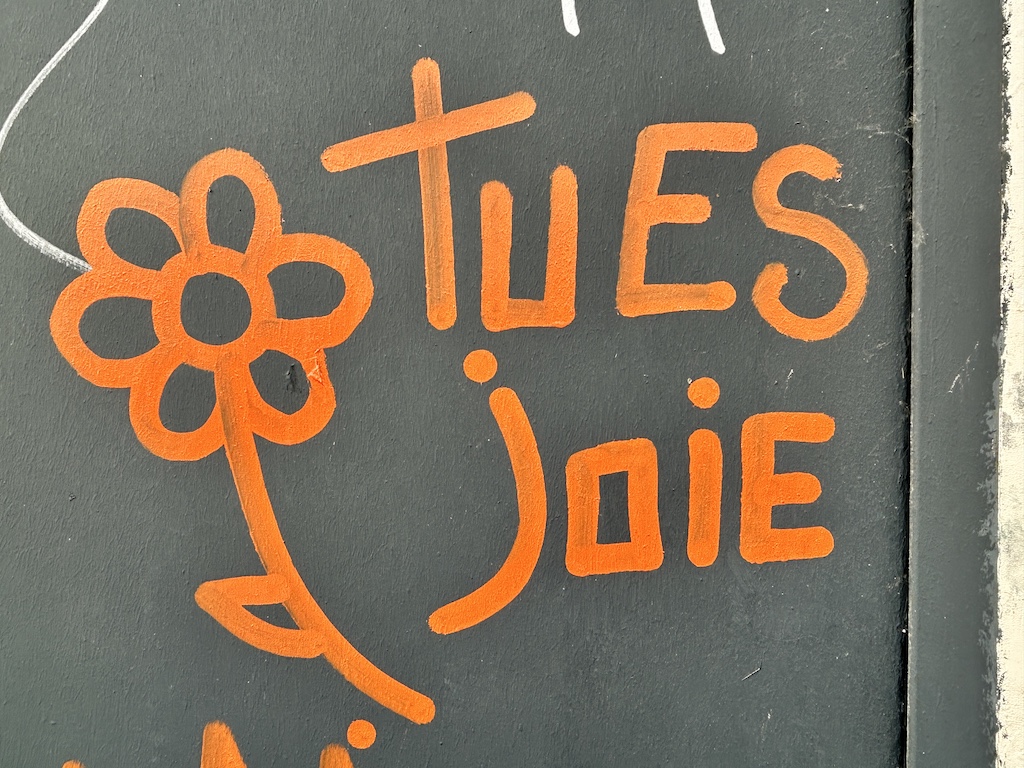 TUES
jOiE